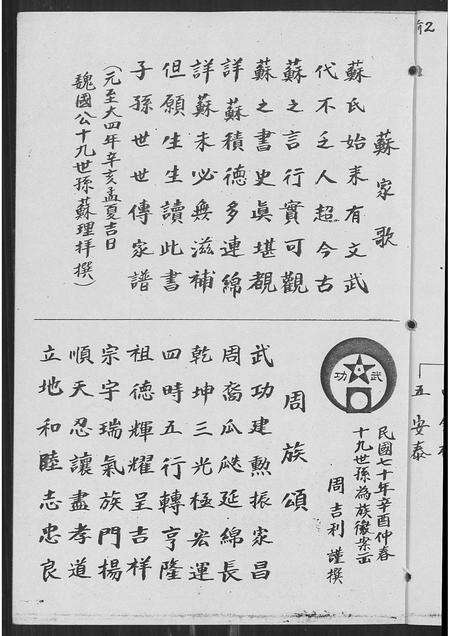 蘇家歌
蘇氏始來有文武
代不乏人超今古
蘇之言行實可觀
蘇之書史真堪覩
詳蘇積德多連綿
詳蘇未必無滋補
但願生生讀此書
子孫世世傳家譜
(元至大四年辛亥孟夏吉日
魏國公十九世孫蘇理拜撰)
武功
民國七十年辛酉仲春
十九世孫為族徽案面
周吉利謹撰
周族頌
武功建勲振家昌
周裔瓜瓞延綿長
乾坤三光極宏運
四時五行轉亨隆
祖德輝耀呈吉祥
宗字瑞氣族門揚
順天忍讓盡孝道
立地和睦志忠良
五安泰
2